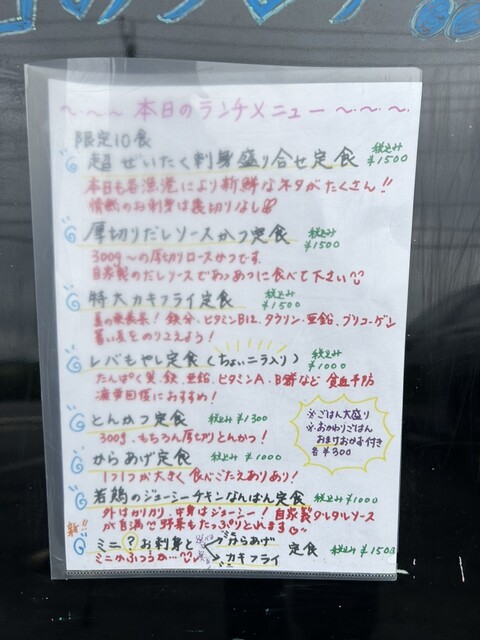 〜〜〜 本日のランチメニュー 〜〜〜
限定10食
超 ぜいたく刺身盛り合せ定食 税込み ¥1500
本日も各漁港により新鮮なネタがたくさん!!
情熱のお刺身は裏切りなし
厚切りだしソースかつ定食 税込み ¥1500
300g〜の厚切りロースかつです。
自家製のだしソースでわっあつに食べて下さい
特大カキフライ定食 税込み ¥1500
夏の栄養素! 鉄分、ビタミンB12、タウリン・亜鉛、グリコーゲン
暑い夏をのりこえよう!
レバもやし定食(ちょいニラ入り) 税込み ¥1000
たんぱく質、鉄、亜鉛、ビタミンA・B群など 貧血予防
疲労回復におすすめ!
とんかつ定食 税込み ¥1300
300g、もちろん厚切りとんかつ!
からあげ定食 税込み ¥1000
1つ1つが大きく食べごたえありあり!
※ごはん大盛り
※おかわりごはん
おまけおかず付き
各¥300
若鶏のジューシーチキンなんばん定食 税込み ¥1000
外はカリカリ、中身はジューシー! 自家製タルタルソース
が自満 野菜もたっぷりとれます
新!!
ミニ?お刺身と からあげ カキフライ 定食 税込み ¥1500
ミニかふつうか…